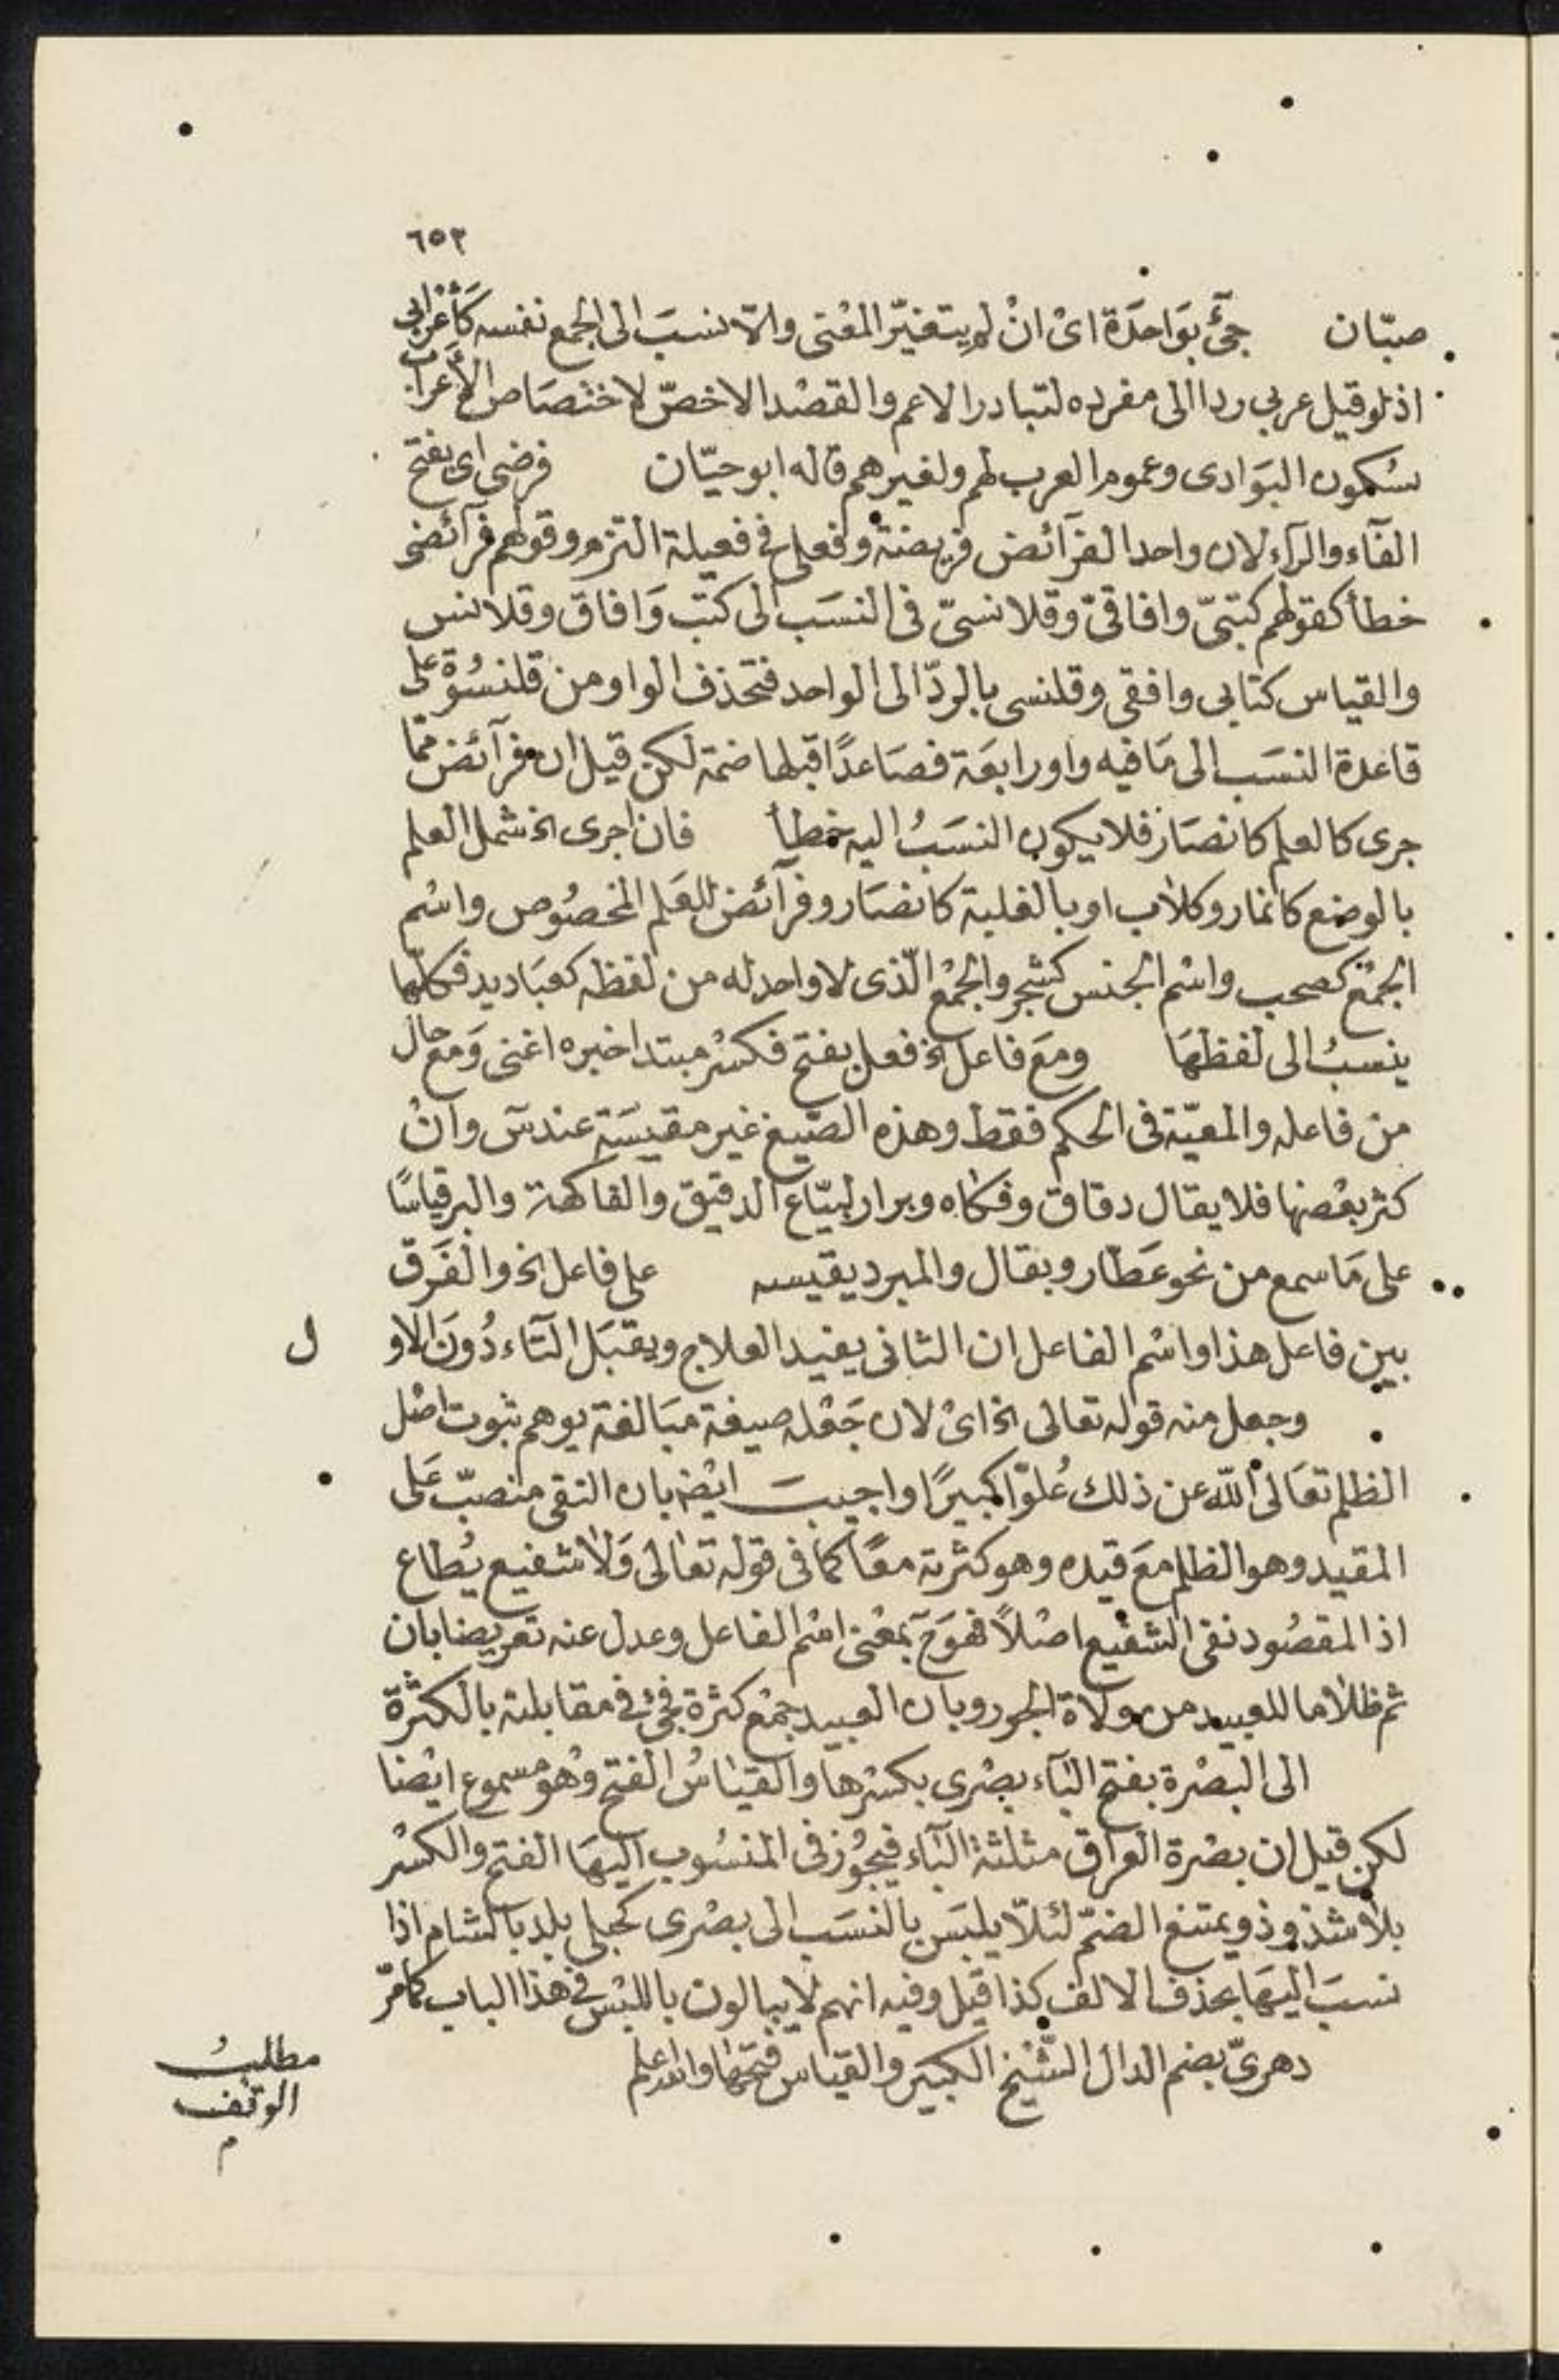 ٦٥٣
صبّان جئ بوَاحدَة اىْ انْ لم يتغيّر المعْنى والّا نسبَ الى الجمع نفسه كأعْرَابى
اذ لو قيل عربى ردا الى مفرده لتبادر الاعم والقصْد الاخصّ لاختصَاص الأعرَاب
بسُكون البَوَادى وعموم العرب لهم ولغيرهم قاله ابوحيّان فرضى اى بفتح
الفآء والرآء لان واحد الفرآئض فريضة وفعلى فى فعيلة التزم وقولهم فرآئضى
خطأ كقولهم كتبىّ وافاقىّ وقلانسىّ فى النسَب الى كتب وَافاق وقلانس
والقياس كتابى وافقى وقلنسى بالردّ الى الواحد فتحذف الواو من قلنسُوة على
قاعدة النسَب الى مَا فيه واو رابعَة فصَاعدًا قبلها ضمة لكن قيل ان فرآئض ممّا
جرى كالعلم كانصَار فلا يكون النسَبُ اليه خطأ فان اجرى الخ شمل العلم
بالوضع كانمار وكلاب او بالغلبة كانصَار وفرآئض للعَلم المخصُوص واسْم
الجمْع كصحب واسْم الجنس كشجر والجمْع الّذى لا واحد له من لفظه كعبَاديد فكلّها
ينسبُ الى لفظهَا ومَع فاعل الخ فعل بفتح فكسْر مبتدا خبره اغنى وَمع حال
من فاعله والمعيّة فى الحكم فقط وهذه الصّيغ غير مقيسَة عند س وانْ
كثر بعْضها فلا يقال دقاق وفكاه وبرار لبيّاع الدقيق والفاكهة والبر قياسًا
على مَا سمع من نحو عَطّار وبقال والمبرد يقيسه على فاعل الخ والفَرَق
بين فاعل هذا واسْم الفاعل ان الثانى يفيد العلاج ويقبَل التآء دُونَ الاو ل
وجعل منه قوله تعالى الخ اىْ لان جَعْله صيغة مبَالغة يوهم ثبوت اصْل
الظلم تعَالى اللّه عن ذلك عُلوّا كبيرًا واجيبَ ايْضا بان النفى منصبّ عَلى
المقيد وهو الظلم مَع قيده وهو كثرته معًا كما فى قوله تعَالى وَلا شفيع يُطاع
اذ المقصُود نفى الشفيع اصْلاً فهوَ ح بمعْنى اسْم الفاعل وعدل عنه تعريضا بان
ثم ظلاما للعبيد من ولاة الجور وبان العبيد جمْع كثرة فجئ فى مقابلته بالكثْرة
الى البَصْرة بفتح البَآء بصْرى بكسْرها والقيَاسُ الفتح وَهُو مسموع ايْضا
لكن قيل ان بصْرة العرَاق مثلثة البَآء فيجُوز فى المنسُوب اليهَا الفتح والكسْر
بلا شذوذ ويمتنع الضمّ لئلاّ يلبَس بالنسَب الى بصْرى كحبلى بلد بالشام اذا
نسبَ اليهَا بحذف الالف كذا قيل وفيه انهم لا يبالون باللبْس فى هذا الباب كما مرّ
دهرىّ بضم الدال الشّيْخ الكبيَر والقيَاس فتحهَا والله اعلم
مطلبُ
الوقف
م